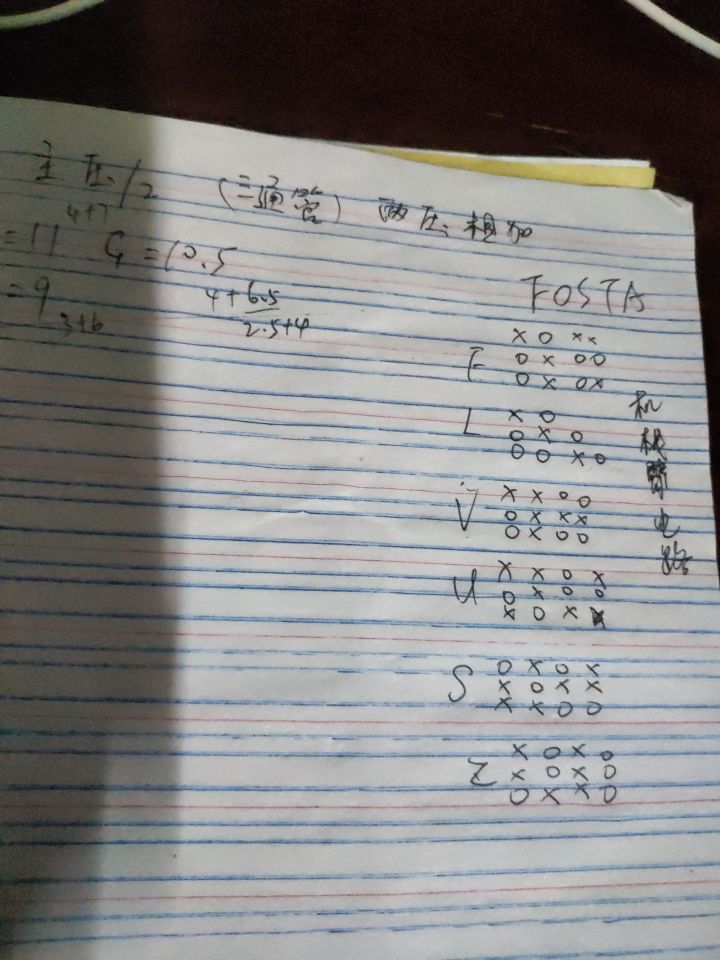 主压 12 (三通) 两压相加
4+7
=11 G=10.5
=9 3+6
4+6.5
2.5+4
FOSTA
x o x x
F o x o o
o x o x
L x o
o x o
o o x o
V x x o o
o x x x
o x o o
U x x o x
o x o o
x o x x
S o x o x
x o x x
x x o o
Z x o x o
x o x o
o x x o
机
电